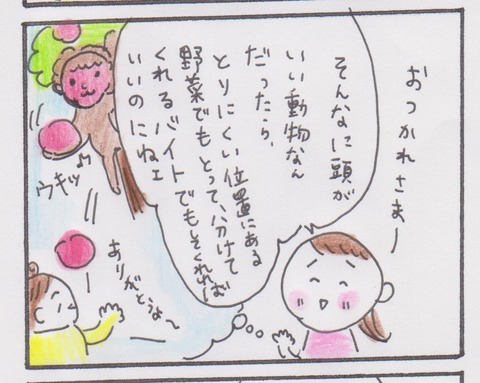 おつかれさまー
そんなに頭が
いい動物なん
だったら、
とりにくい位置にある
野菜でもとって、分けて
くれるバイトでもそくれれば
いいのにねェ
ウキッ♪
ありがとうよ〜